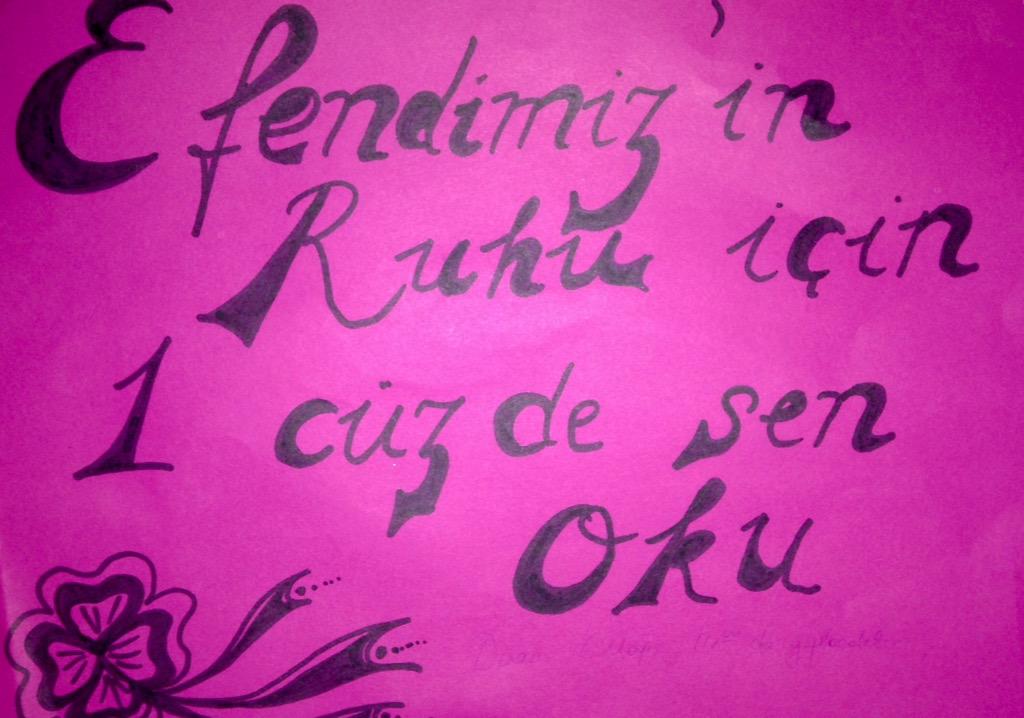 Efendimiz'in
Ruhu için
1 cüz de sen
oku